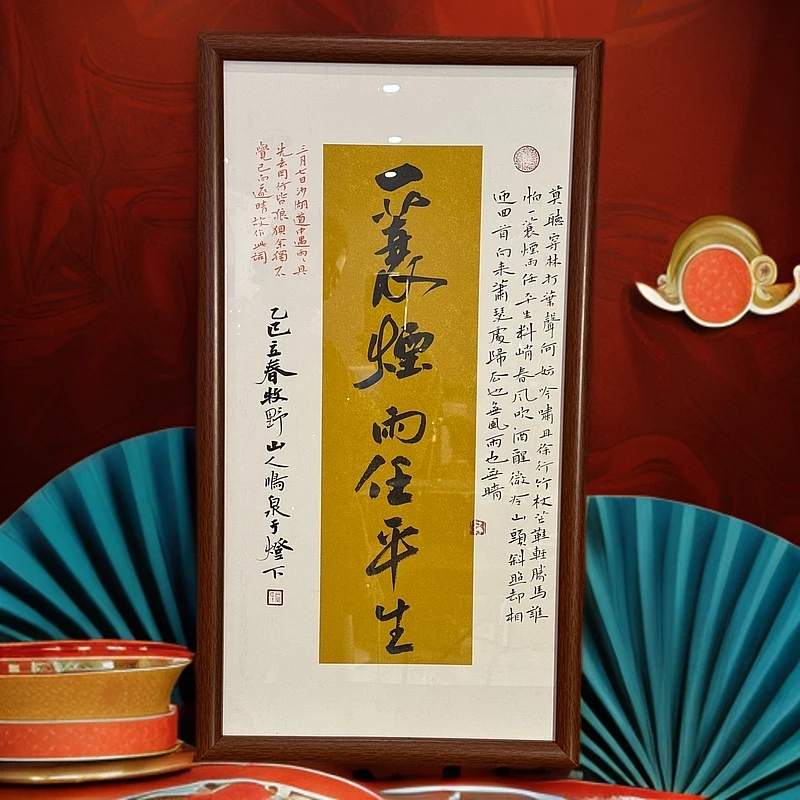 莫聽穿林打葉聲何妨吟嘯且徐行竹杖芒鞋輕勝馬誰
怕一蓑煙雨任平生料峭春风吹酒醒微冷山頭斜照却相
迎回首向来蕭瑟處歸去也無風雨也無晴
一蓑煙雨任平生
三月七日沙湖道中遇雨〻具
先去同行皆狼狽余獨不
覺已而遂晴故作此詞
乙巳立春牧野山人鳴泉于燈下